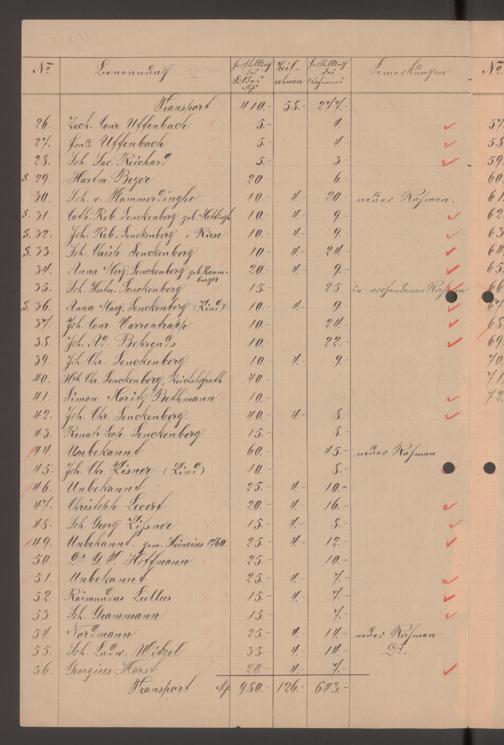 No. Benennung Herstellung des Bildes Mk Keil- rahmen Herstellung des Rahmens Bemerkungen No.
Transport 410.- 58.- 277.-
26. Zach. Conr. Uffenbach 5.- 4.- 57
27. Uffenbach 5.- 4.- 58
28. Joh. Jac. Reichard 5.- 3.- 59
S. 29. Hartm. Beyer 20.- 6.- 60
30. Joh. v. Hammerdinghe 10.- 4.- 20.- neuer Rahmen. 61
S. 31. Cath. Reb. Senckenberg geb. 10.- 4.- 9.- 62
S. 32. Joh. Reb. Senckenberg, Riese 10.- 4.- 9.- 63
S. 33. Joh. Senckenberg 10.- 4.- 24.- 64
34. Anna Marg. Senckenberg geb. Raum- burger 20.- 4.- 9.- 65
35. Joh. Hartm. Senckenberg 15.- 25.- in vorhandenen Rahmen 66
S. 36. Anna Marg. Senckenberg (Kind) 10.- 4.- 9.- 67
37. Joh. Conr. Varrentrapp 10.- 24.- 68
38. Joh. Ad. Behrends 10.- 22.- 69
39. Joh. Chr. Senckenberg 10.- 4.- 9.- 70
40. Chr. Senckenberg, Reichshofrath 40.- 71
41. Simon Moritz Bethmann 10.- 72
42. Joh. Chr. Senckenberg. 40.- 4.- 8.-
43. Renat. Senckenberg 15.- 8.-
44. Unbekannt 60.- 45.- neuer Rahmen
45. Joh. Chr. Zisner (Kind) 10.- 8.-
46. Unbekannt 25.- 4.- 10.-
47. Christoph 20.- 4.- 16.-
48. Joh. Georg 15.- 4.- 8.-
49. Unbekannt gem. Heincius 1760 25.- 4.- 12.-
50. Dr. Hoffmann 25.- 10.-
51. Unbekannt 25.- 4.- 7.-
52. Raimundus Lullus 15.- 4.- 7.-
53. Joh. Grammann 15.- 7.-
54. Nordmann 25.- 4. 14.- neuer Rahmen
55. Joh. Ludw. Wickel 35.- 4.- 14.- Do.
56. Georgius Horst 20.- 4.- 7.-
Transport Mk 980.- 126.- 643.-